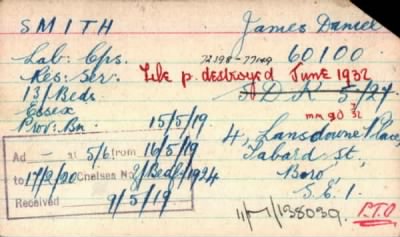 SMITH James Daniel
Lab: Cps. 72198-77149 60100
Res: Ser: File p. destroyed June 1932
13/Beds 5/27
Essex mm 90 32
Prov: Bn 15/5/19 4, Lansdowne Place,
Ad - at 5/6 from 16/5/19 Tabard St.,
to 17/2/20 Chelsea No 2/Beds/1924 Boro,
Received 9/5/19 S.E.1.
138039. P.T.O